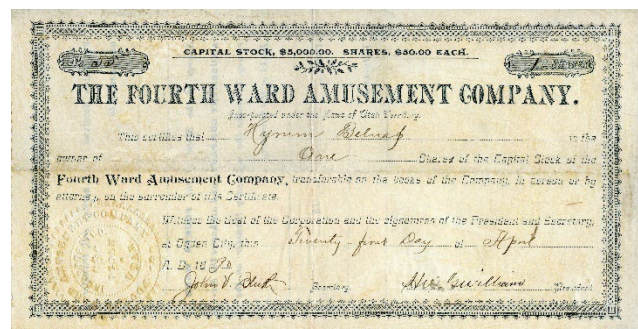 CAPITAL STOCK, $5,000.00. SHARES, $50.00 EACH.
THE FOURTH WARD AMUSEMENT COMPANY.
Incorporated under the Laws of Utah Territory.
This certifies that Hyrum Belnap is the
owner of One Shares of the Capital Stock of the
Fourth Ward Amusement Company, transferable on the books of the Company, in person or by
attorney, on the surrender of this Certificate.
Witness the Seal of the Corporation and the signatures of the President and Secretary,
at Ogden City, this Twenty-first Day of April
A. D. 18
John V. Secretary. President.